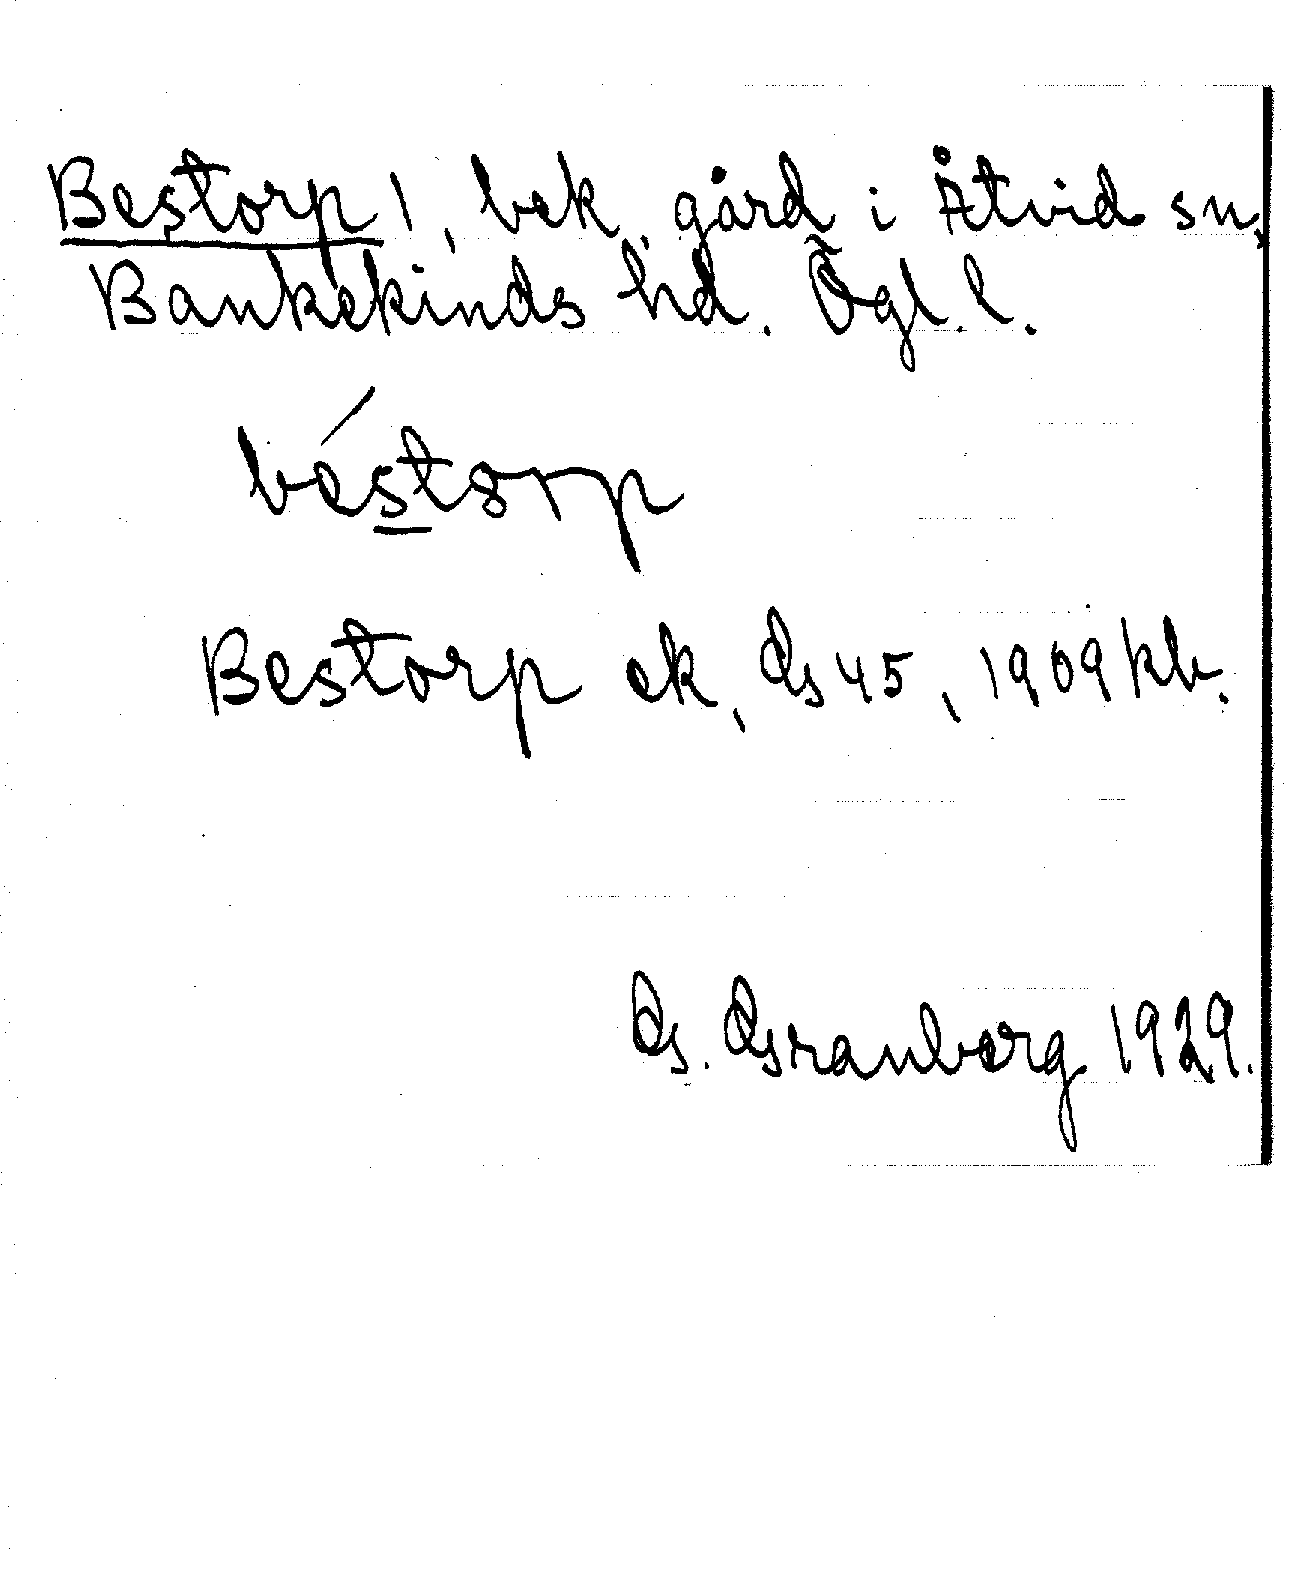 Bestorp!, bek. gård i Åtvid sn,
Bankekinds hd. Ögl. l.
béstorp
Bestorp ek, G 45, 1909 kb.
G. Granberg 1929.